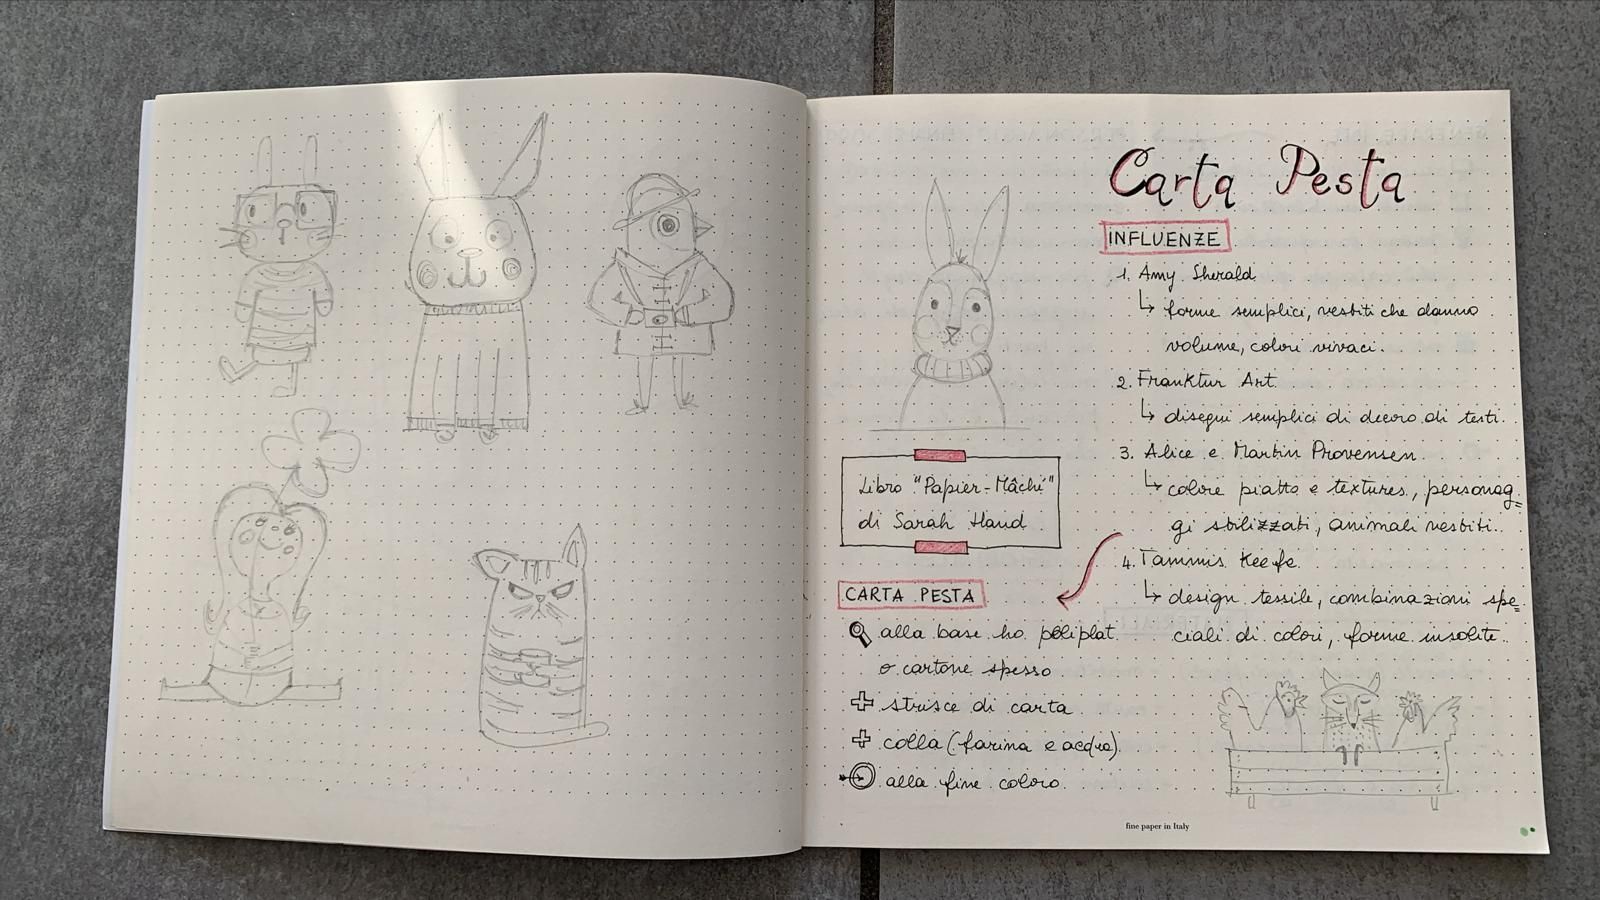 Carta Pesta
INFLUENZE
1. Amy Sherald
↳ forme semplici, vestiti che danno
volume, colori vivaci.
2. Franktur Art
↳ disegni semplici di decoro di testi.
3. Alice e Martin Provensen
↳ colore piatto e textures, personag=
gi stilizzati, animali vestiti..
4. Tammis Keefe
↳ design tessile, combinazioni spe=
ciali di colori, forme insolite..
Libro "Papier-Mâché"
di Sarah Hand
CARTA PESTA
alla base ho poliplat
o cartone spesso
+ strisce di carta
+ colla (farina e acqua)
alla fine coloro
fine paper in Italy